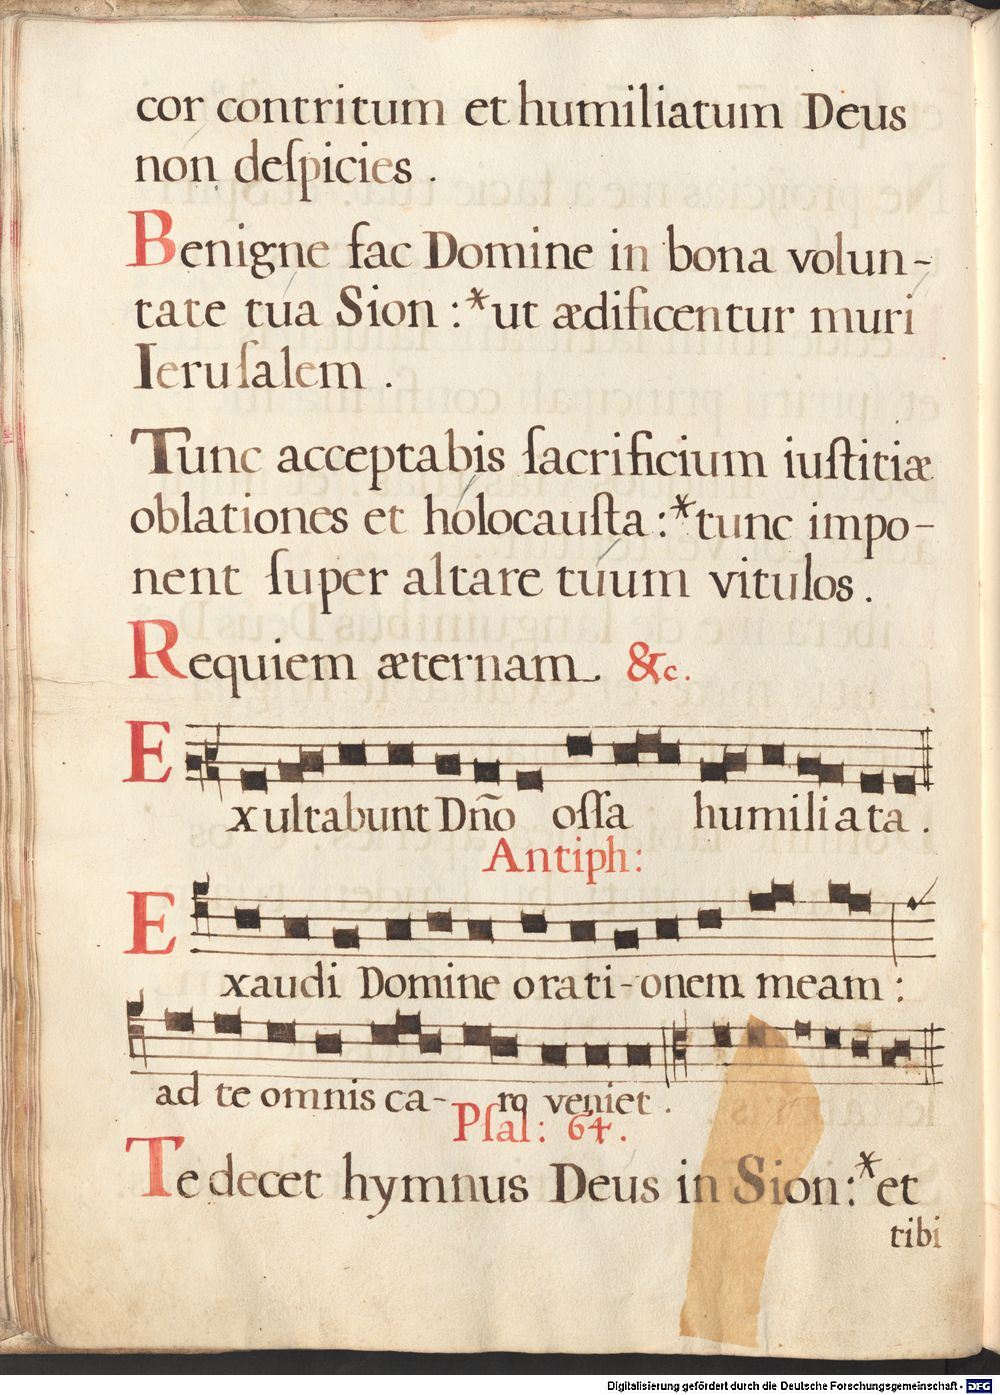 cor contritum et humiliatum Deus
non deſpicies .
Benigne fac Domine in bona volun-
tate tua Sion :*ut ædificentur muri
Ieruſalem .
Tunc acceptabis ſacrificium iuſtitiæ
oblationes et holocauſta :*tunc impo-
nent ſuper altare tuum vitulos .
Requiem æternam . &c.
Exultabunt Dño oſſa humiliata .
Antiph:
Exaudi Domine orati-onem meam :
ad te omnis ca- ro veniet .
Pſal: 64.
Te decet hymnus Deus in Sion:*et
tibi
Digitalisierung gefördert durch die Deutsche Forschungsgemeinschaft - DFG